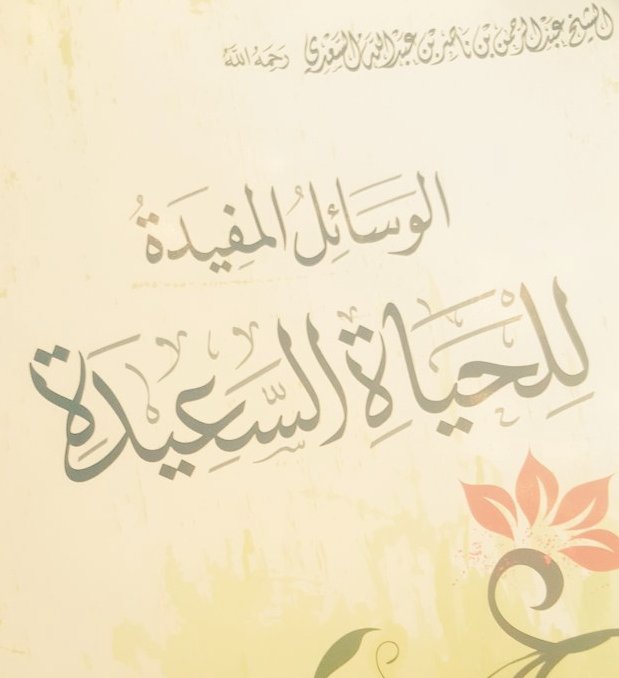 الشيخ عبد الرحمن بن ناصر بن عبد الله السعدي رحمه الله
الوَسَائِلُ المُفِيدَةُ
لِلْحَيَاةِ السَّعِيدَةِ